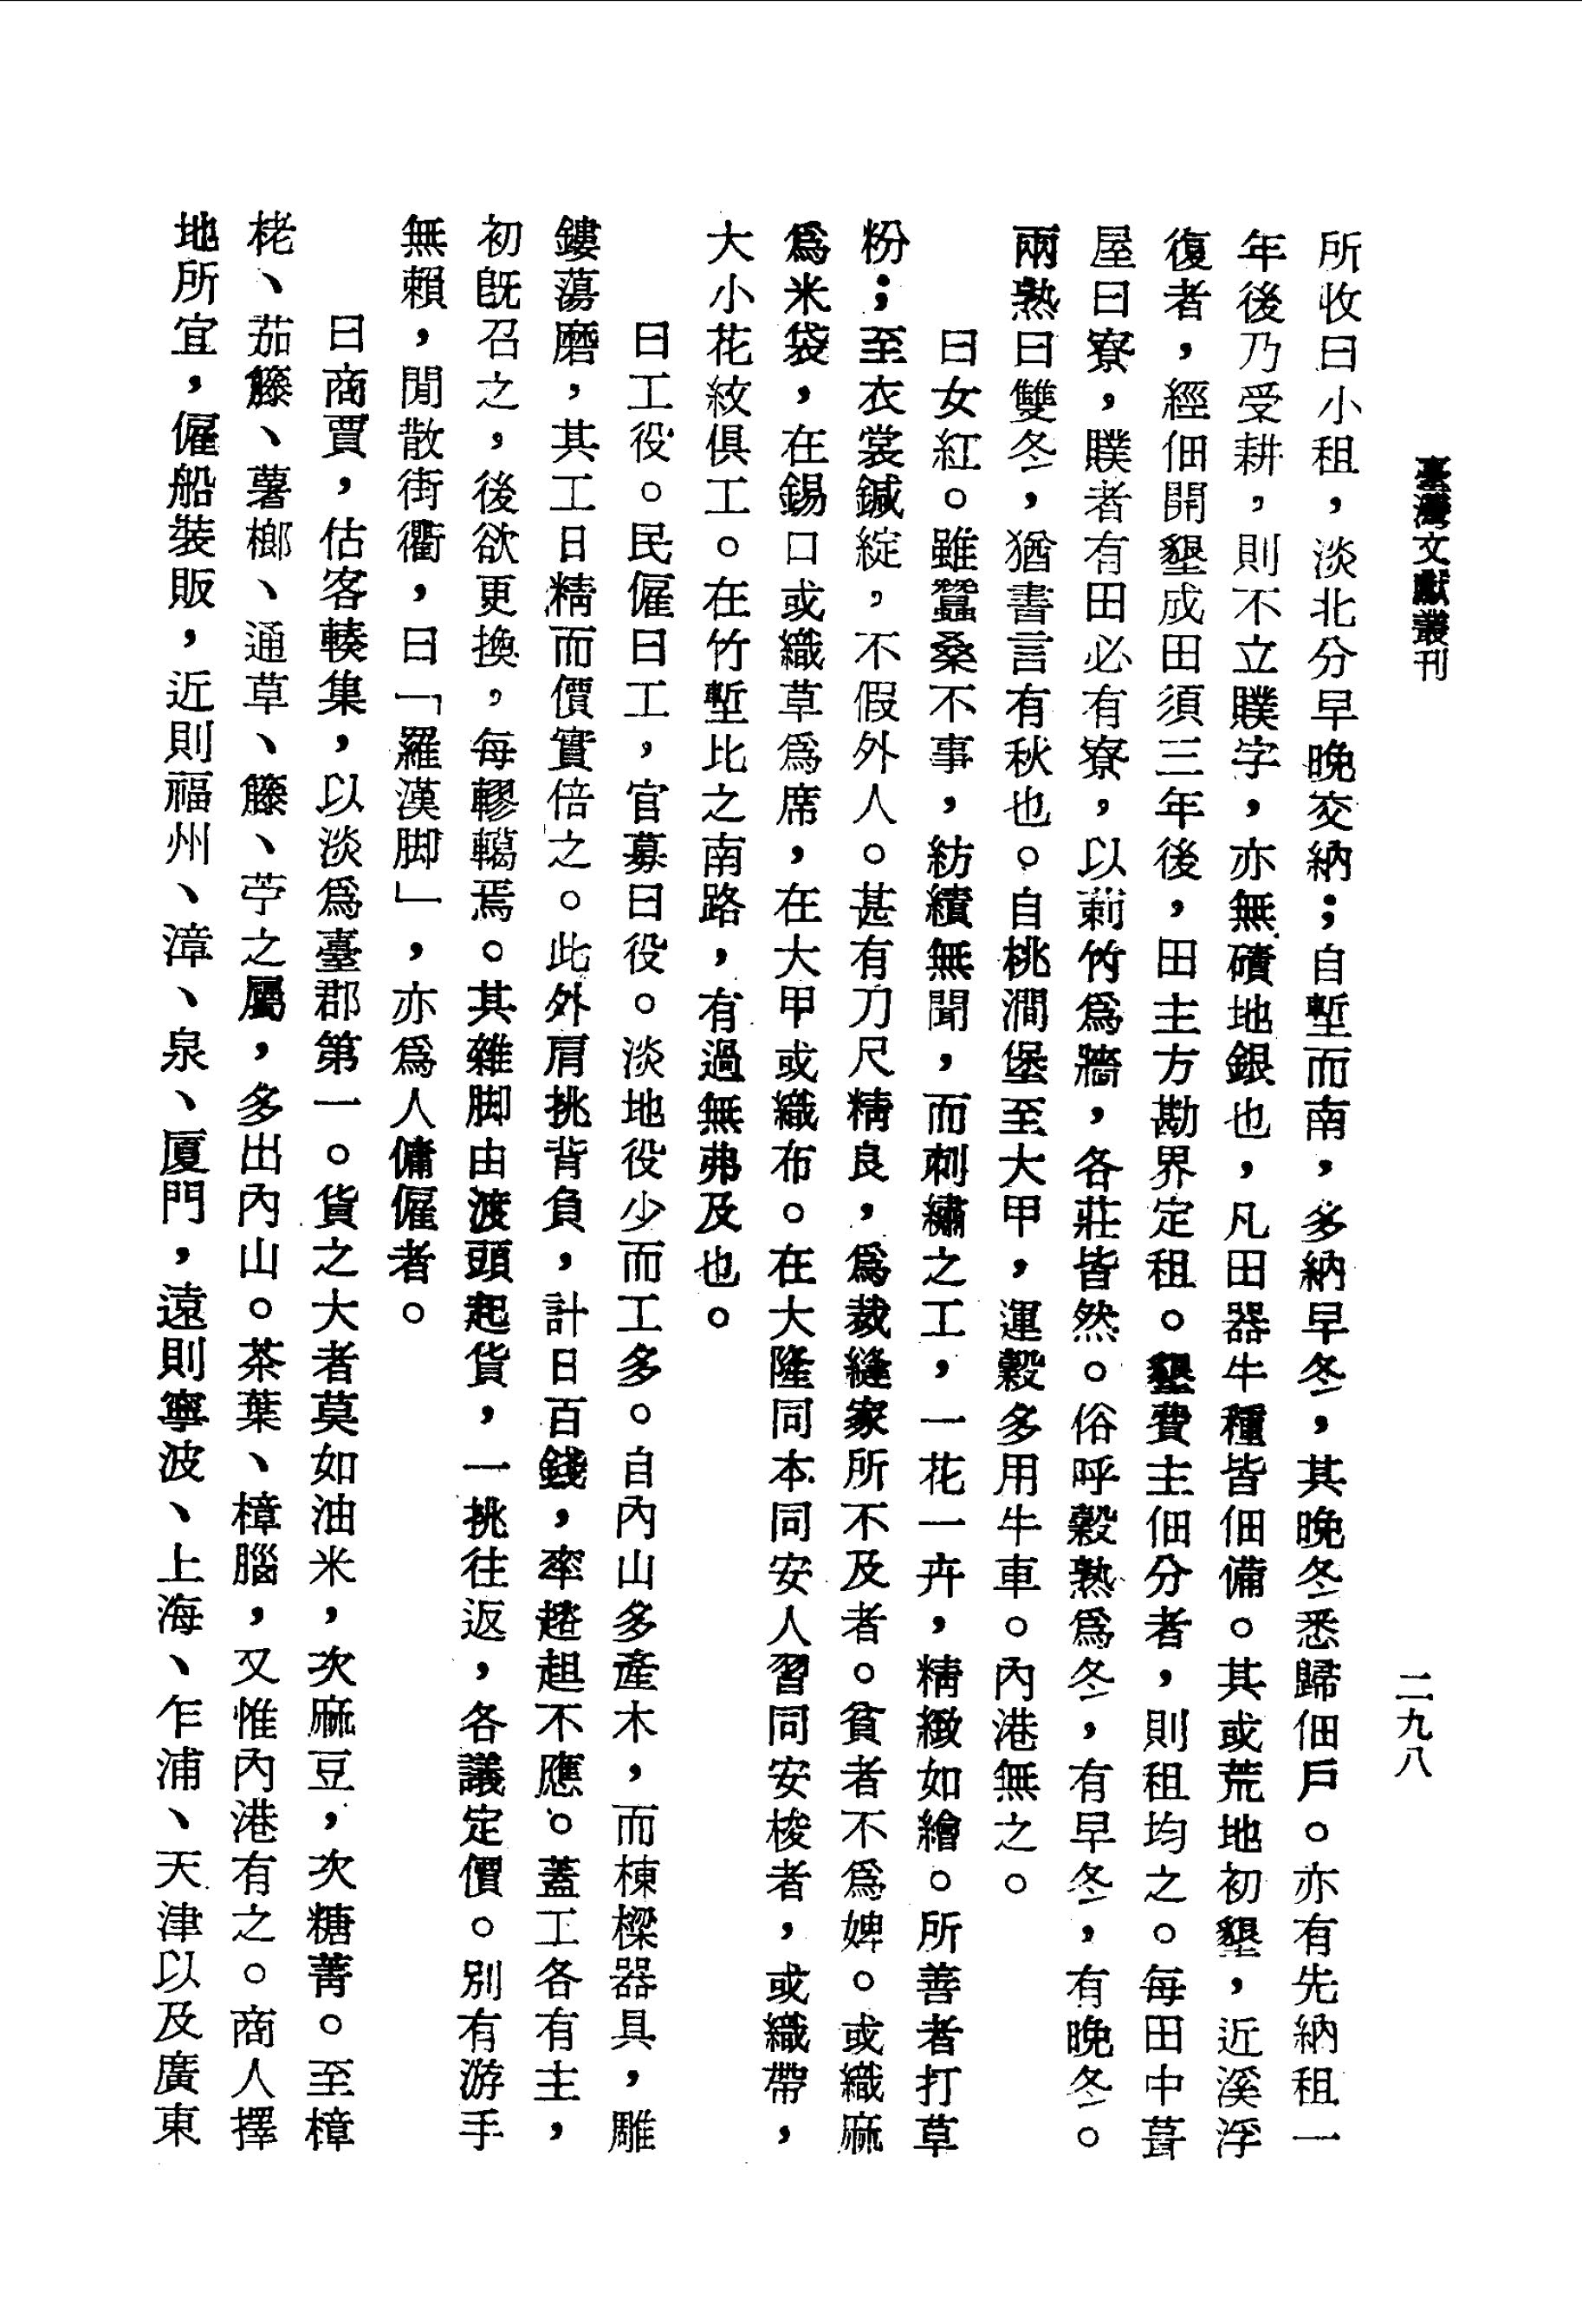 臺灣文獻叢刊
二九八
所收曰小租，淡北分早晚交納；自塹而南，多納早冬，其晚冬悉歸佃戶。亦有先納租一
年後乃受耕，則不立贌字，亦無磧地銀也，凡田器牛種皆佃備。其或荒地初墾，近溪浮
復者，經佃開墾成田須三年後，田主方勘界定租。墾費主佃分者，則租均之。每田中葺
屋曰寮，贌者有田必有寮，以莿竹爲牆，各莊皆然。俗呼穀熟爲冬，有早冬，有晚冬。
兩熟曰雙冬，猶書言有秋也。自桃澗堡至大甲，運穀多用牛車。內港無之。
曰女紅。雖蠶桑不事，紡績無聞，而刺繡之工，一花一卉，精緻如繪。所善者打草
粉；至衣裳鍼綻，不假外人。甚有刀尺精良，爲裁縫家所不及者。貧者不爲婢。或織麻
爲米袋，在錫口或織草爲席，在大甲或織布。在大隆同本同安人習同安梭者，或織帶，
大小花紋俱工。在竹塹比之南路，有過無弗及也。
曰工役。民僱曰工，官募曰役。淡地役少而工多。自內山多產木，而棟樑器具，雕
鏤蕩磨，其工日精而價實倍之。此外肩挑背負，計日百錢，率趦趄不應。蓋工各有主，
初旣召之，後欲更換，每轇轕焉。其雜脚由渡頭起貨，一挑往返，各議定價。別有游手
無賴，閒散街衢，曰「羅漢脚」，亦爲人傭僱者。
曰商賈，估客輳集，以淡爲臺郡第一。貨之大者莫如油米，次麻豆，次糖菁。至樟
栳、茄籐、薯榔、通草、籐、苧之屬，多出內山。茶葉、樟腦，又惟內港有之。商人擇
地所宜，僱船裝販，近則福州、漳、泉、厦門，遠則寧波、上海、乍浦、天津以及廣東